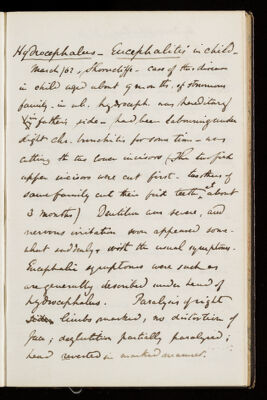 Hydrocephalus – Encephalitis in child –
March/62, Shorncliffe – case of this disease
in child aged about 9 months, of strumous
family. in wh. hydroceph. was hereditary
in father's side – had been labouring under
slight chr. bronchitis for some time – was
cutting the two lower incisors (The two first
upper incisors were cut first. Brothers of
same family cut their first teeth at about
3 months) Dentition was severe, and
nervous irritation soon appeared some-
what suddenly, with the usual symptoms.
Encephalic symptoms were such as
are generally described under head of
hydrocephalus. Paralysis of right
limbs marked, no distortion of
face; deglutition partially paralysed;
head everted in marked manner.